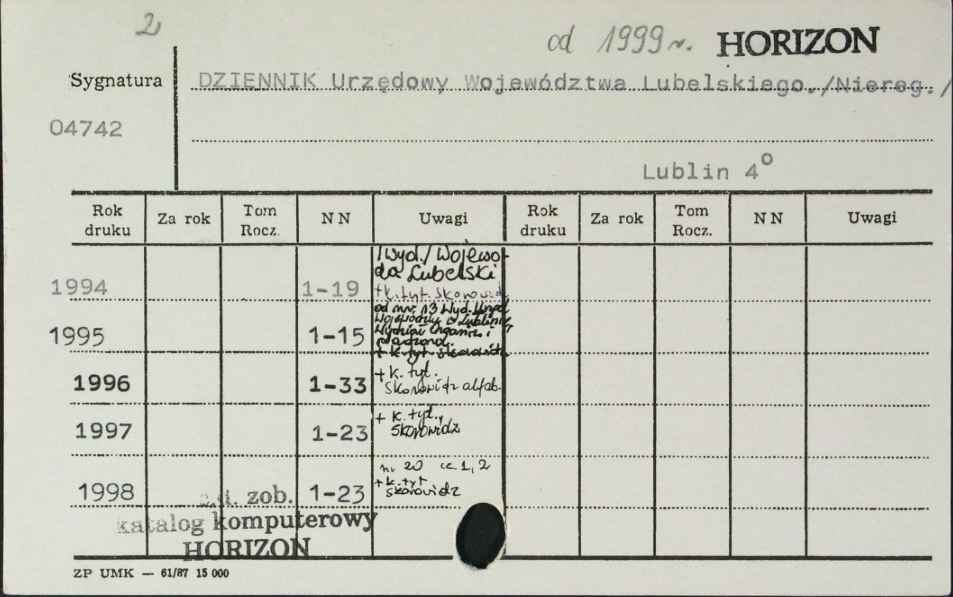 2
od 1999 r. HORIZON
Sygnatura DZIENNIK Urzędowy Województwa Lubelskiego./Niereg./
04742
Lublin 4°
Rok druku Za rok Tom Rocz. NN Uwagi Rok druku Za rok Tom Rocz. NN Uwagi
/Wyd./ Wojewo-
da Lubelski
1994 1-19 + k. tyt. Skorowidz
od nr 13 Wyd. Urząd
Wojewódzki w Lublinie
Wydział Organiz. i
1995 1-15
+ k. tyt. skorowidz
1996 1-33 + k. tyt.
skorowidz alfab.
1997 1-23 + k. tyt.,
skorowidz
nr 20 cz 1, 2
1998 1-23 + k. tyt
skorowidz
zob.
katalog komputerowy
HORIZON
ZP UMK — 61/87 15 000